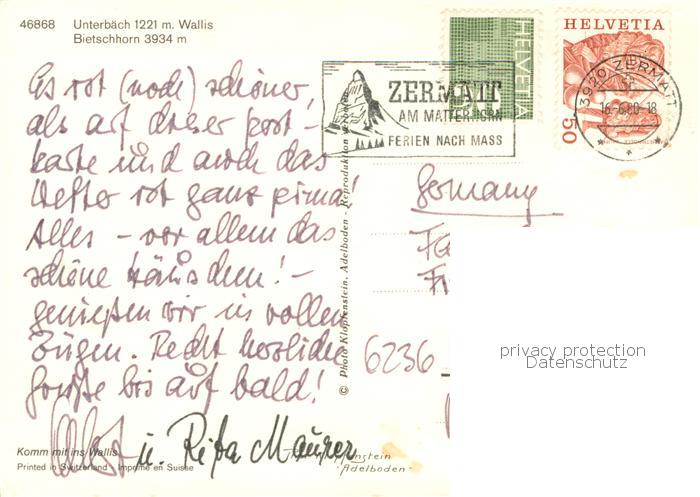 46868 Unterbäch 1221 m. Wallis
Bietschhorn 3934 m
Es ist (noch) schöner,
als auf dieser Post-
karte und auch das
Wetter ist ganz prima!
Alles - vor allem das
schöne Häuschen! -
genießen wir in vollen
Zügen. Recht herzliche
Grüße bis auf bald!
u. Rita Maurer
Komm mit ins Wallis
Printed in Switzerland Imprimé en Suisse
© Photo Klopfenstein, Adelboden - Reproduktion verboten
HELVETIA
HELVETIA
50
ZERMATT
AM MATTERHORN
FERIEN NACH MASS
3920 ZERMATT
16.-6.80-18
Germany
6236
Klopfenstein
Adelboden
privacy protection
Datenschutz